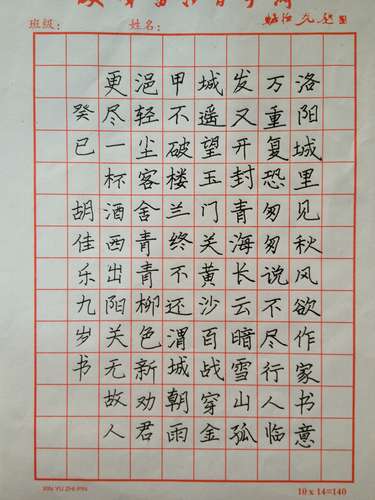 班级：
姓名：
洛阳城里见秋风欲作家书意
万重复恐匆匆说不尽行人临
发又开封青海长云暗雪山孤
城遥望玉门关黄沙百战穿金
甲不破楼兰终不还渭城朝雨
浥轻尘客舍青青柳色新劝君
更尽一杯酒西出阳关无故人
癸巳 胡佳乐九岁书
XIN YU ZHI PIN
10 x 14=140